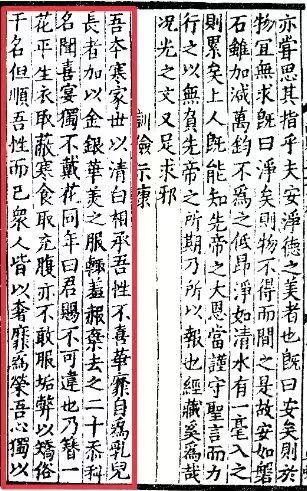 亦嘗思其指乎夫安淨德之美者也既曰安矣則於
物宜無求既曰淨矣則物不得而間之是故安如磐
石雖加減萬鈞不為之低昂淨如清水有一毫入之
則累矣上人既能知先帝之大恩當謹守聖言而力
行之以無負先帝之所期乃所以報也經藏奚為哉
况光之文又足求邪
訓儉示康
吾夲寒家世以清白相承吾性不喜華靡自為乳兒
長者加以金銀華美之服輙羞赧棄去之二十忝科
名聞喜宴獨不戴花同年曰君賜不可違也乃簪一
花平生衣取蔽寒食取充腹亦不敢服垢弊以矯俗
干名但順吾性而已衆人皆以奢靡為榮吾心獨以